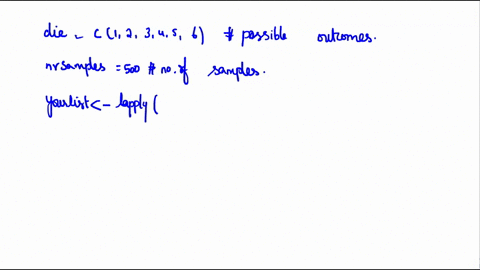 die _ c (1, 2, 3, 4, 5, 6) # possible outcomes.
nrsamples = 500 # no. of samples.
yourlist <- lapply (